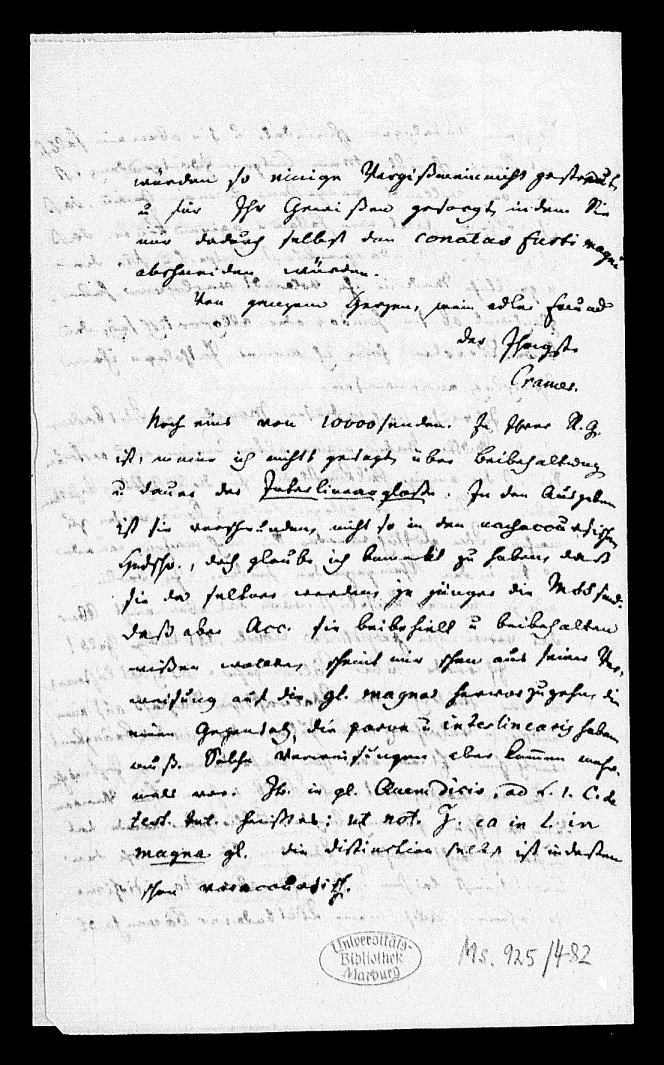 würden so einige Vergißmeinnicht gestreut,
u für Ihr Gewissen gesorgt, indem Sie
mir dadurch selbst den conatus furti magni
abschneiden würden.
Von ganzem Herzen, mein edler Freund
der Ihrigste
Cramer.
Noch eins von 10000senden. In Ihrer R.G.
ist, meine ich nichts gesagt, über Beibehaltung
u Dauer der Interlinearglosse. In den Ausgaben
ist sie verschwunden, nicht so in den nachaccursischen
Hndschr., doch glaube ich bemerkt zu haben, daß
sie da seltner werden, je jünger die MSS sind.
daß aber Acc. sie beibehielt u beibehalten
wissen wollte, scheint mir schon aus seiner Ver-
weisung auf die gl. magna hervorzugehn, die
einen Gegensatz, die parva u interlinearis haben
muß. Solche Verweisungen aber kommen mehr-
mals vor. Zb. in gl. dicis, ad L. 1. C. de
test. heißt es: ut not. J. ea in L. in
magna gl. die distinction selbst ist indessen
schon voraccursisch.
Universitäts-
Bibliothek
Marburg
Ms. 925/482